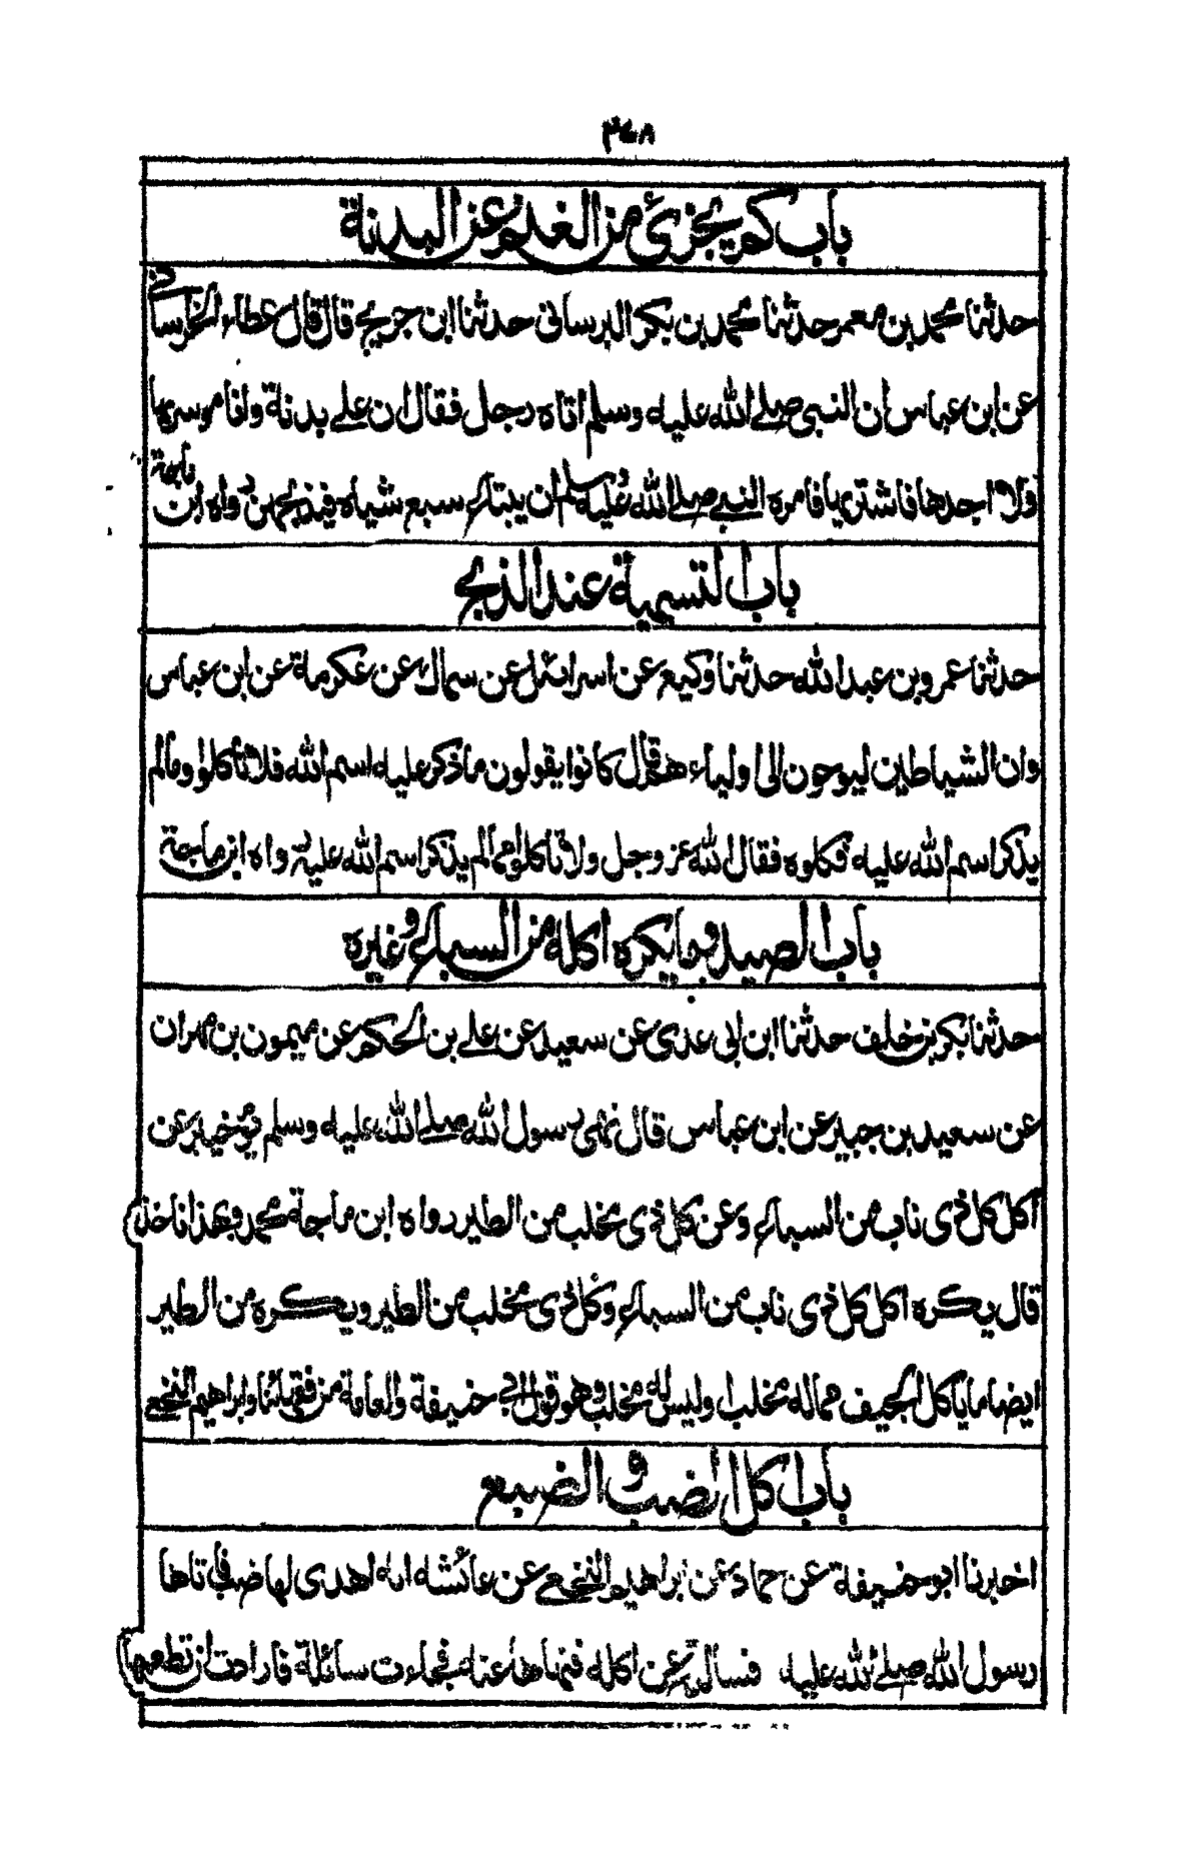 ٣٤٨
باب كم يجزئ من الغنم عن البدنة
حدثنا محمد بن معمر حدثنا محمد بن بكر البرسانى حدثنا ابن جريج قال قال عطاء الخراسانى
عن ابن عباس ان النبي صلے الله عليه وسلم اتاه رجل فقال ان علے بدنة وانا موسر بها
ولا اجدها فاشتريها فامره النبي صلے الله عليه وسلم ان يبتاع سبع شياه فيذبحهن رواه ابن ماجة
باب التسمية عند الذبح
حدثنا عمرو بن عبد الله حدثنا وكيع عن اسرائيل عن سماك عن عكرمة عن ابن عباس
وان الشياطين ليوحون الى اولياءهم قال كانوا يقولون ما ذكر عليه اسم الله فلا تأكلوا وما لم
يذكر اسم الله عليه فكلوه فقال الله عز وجل ولا تاكلوا مما لم يذكر اسم الله عليه رواه ابن ماجة
باب الصيد وما يكره اكله من السباع وغيره
حدثنا بكر بن خلف حدثنا ابن ابى عدى عن سعيد عن علے بن الحكم عن ميمون بن مهران
عن سعيد بن جبير عن ابن عباس قال نهى رسول الله صلے الله عليه وسلم يوم خيبر عن
اكل كل ذى ناب من السباع وعن كل ذى مخلب من الطير رواه ابن ماجة محمد وبهذا ناخذ
قال يكره اكل كل ذى ناب من السباع وكل ذى مخلب من الطير ويكره من الطير
ايضا ما ياكل الجيف مما له مخلب او ليس له مخلب وهو قول ابى حنيفة والعامة من فقهائنا وابراهيم النخعے
باب اكل الضب والضبع
اخبرنا ابو حنيفة عن حماد عن ابراهيم النخعے عن عائشة انه اهدى لها ضب فاتاها
رسول الله صلے الله عليه فسالته عن اكله فنهاها عنه فجاءت سائلة فارادت ان تطعمها